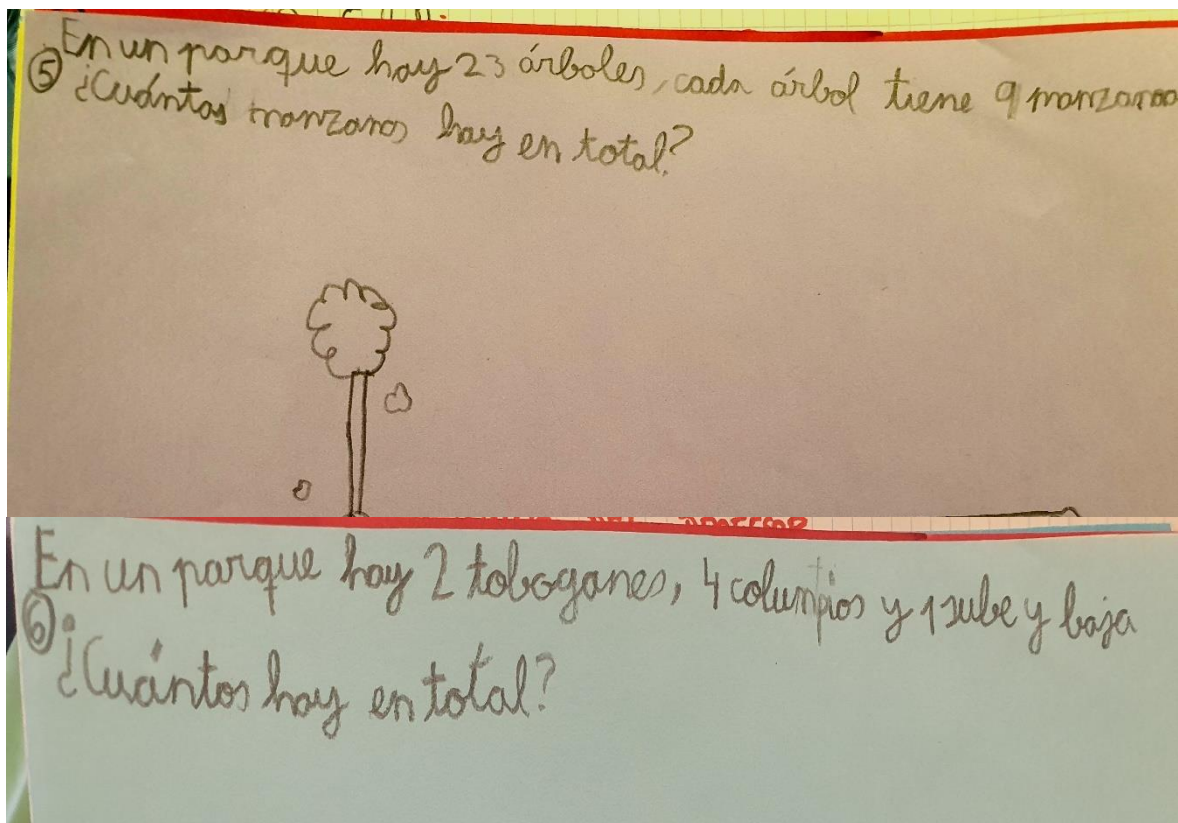 ⑤ En un parque hay 23 árboles, cada árbol tiene 9 manzanas
¿Cuántas manzanas hay en total?
En un parque hay 2 toboganes, 4 columpios y 1 sube y baja
⑥ ¿Cuántos hay en total?